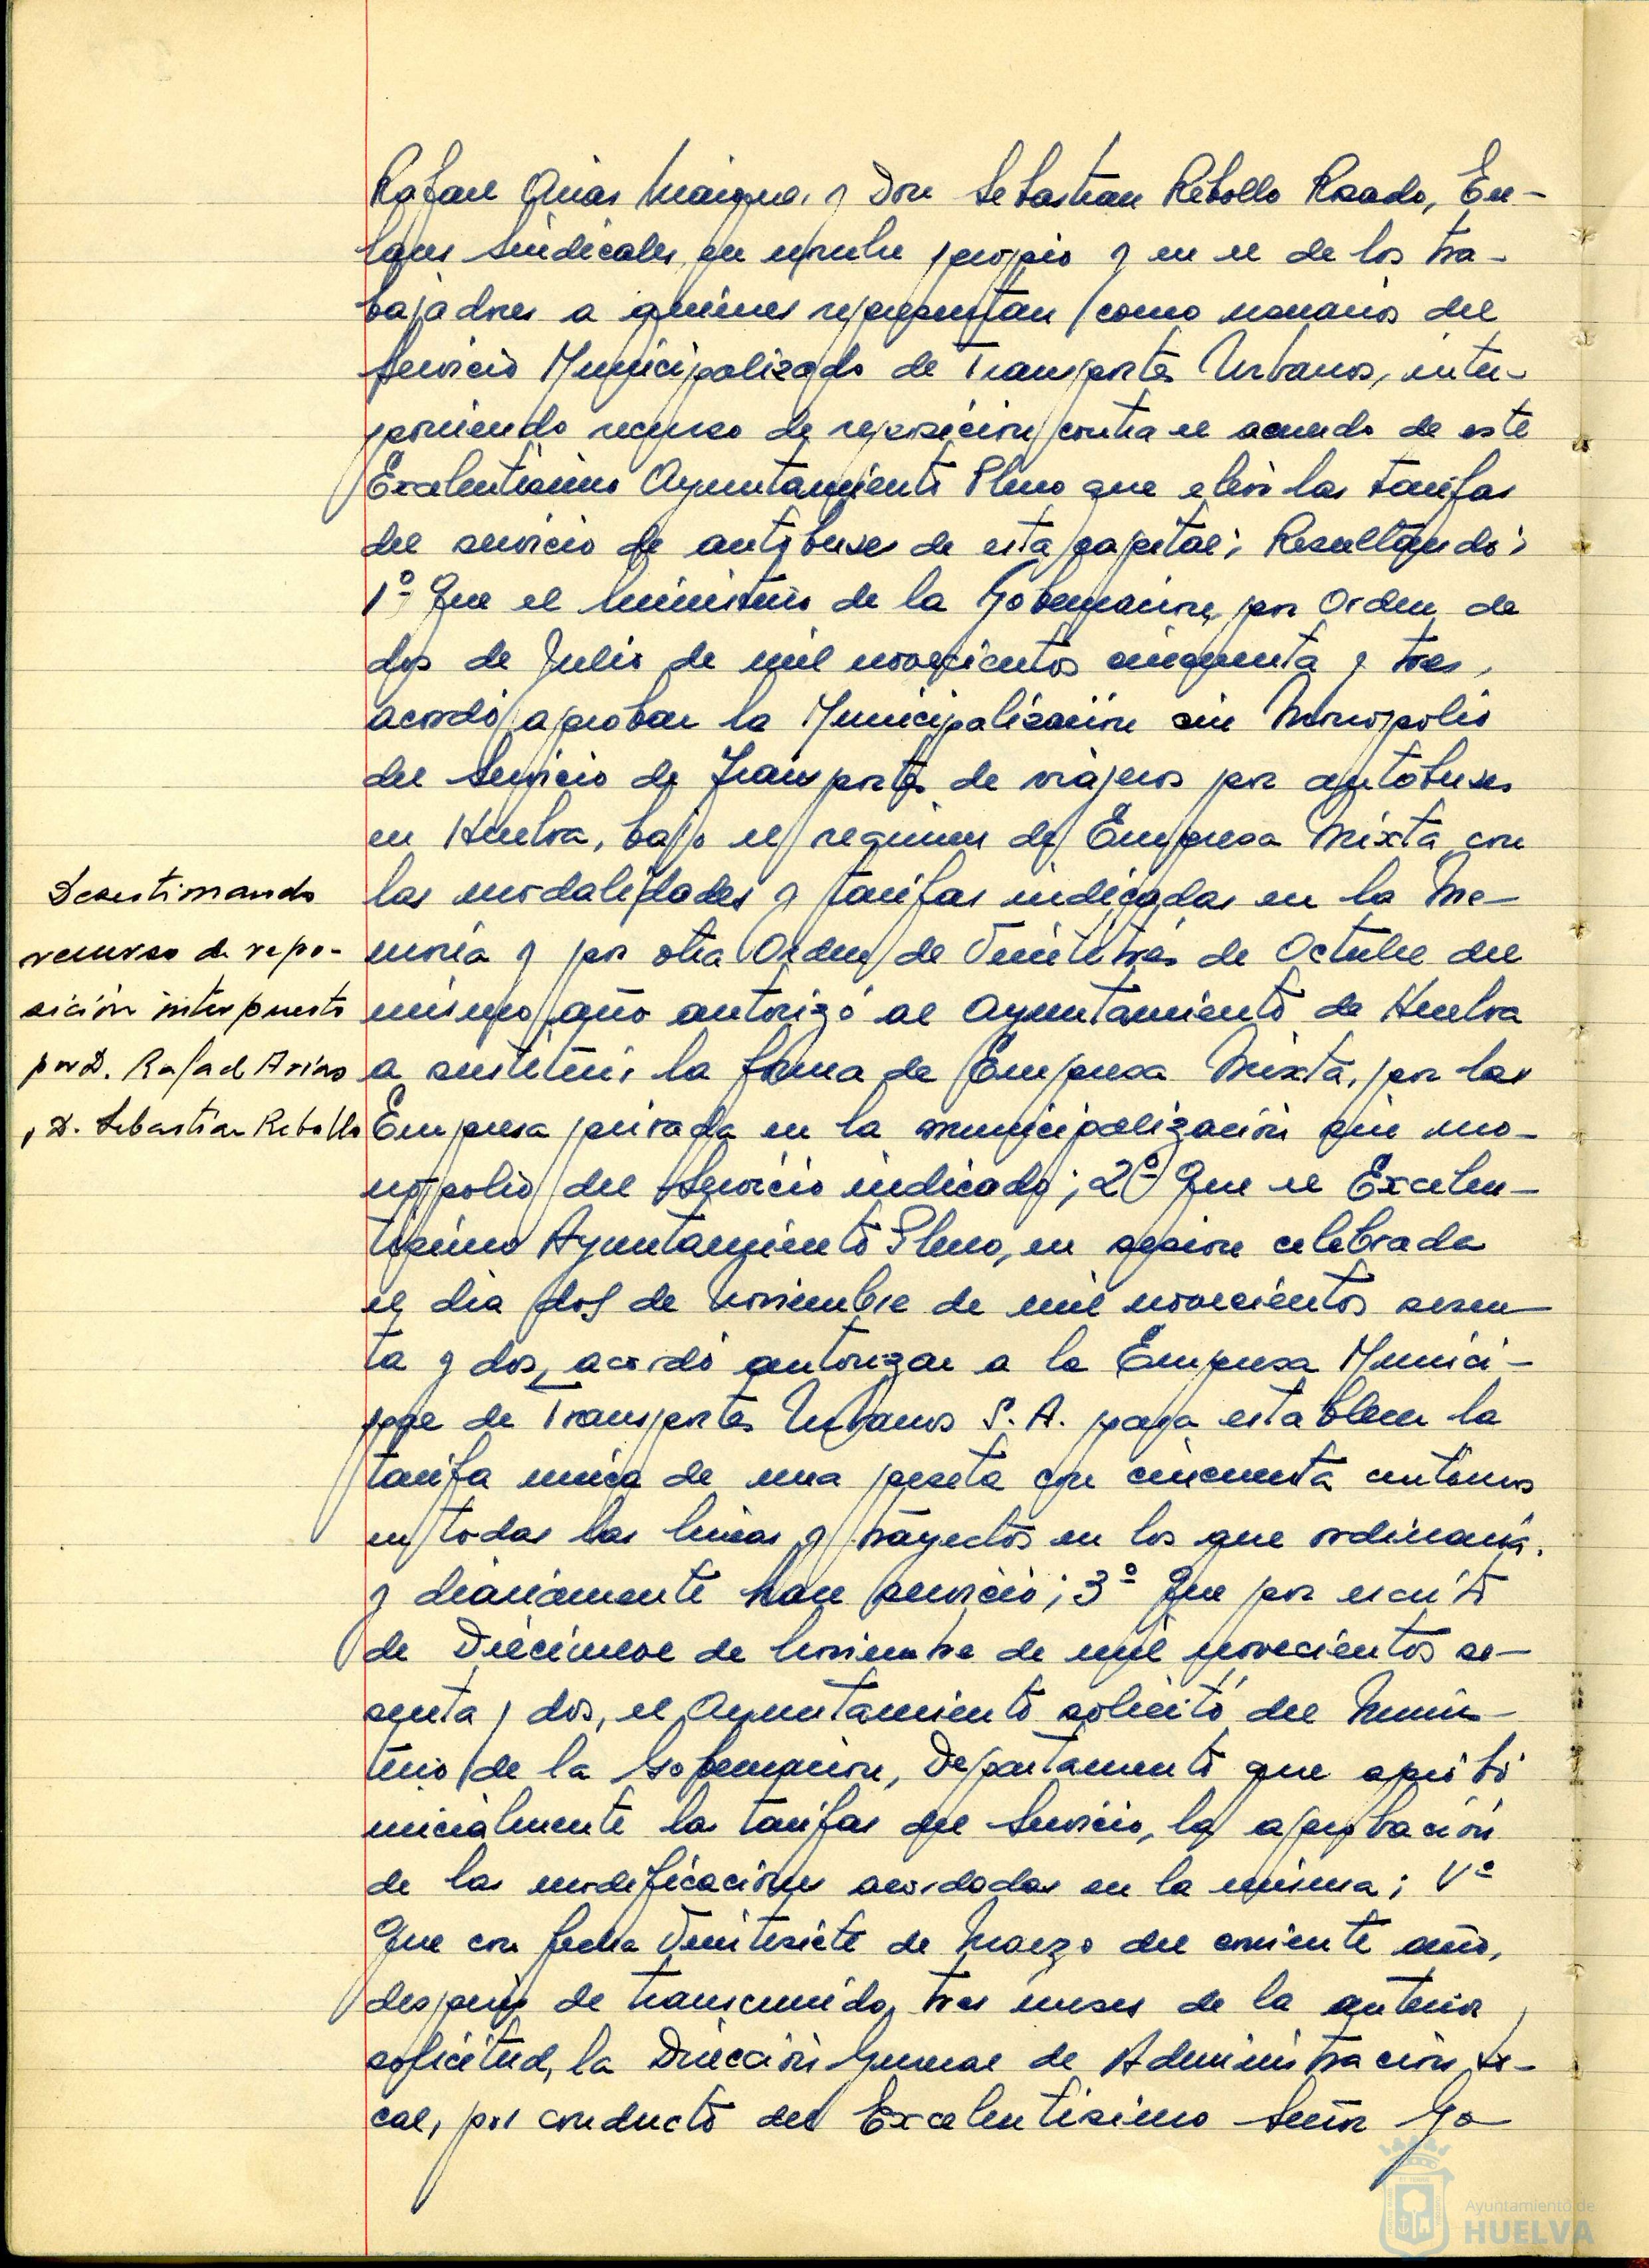 Rafael Arias y Don Sebastian Rebollo Rosado, En-
laces Sindicales, en nombre propio y en el de los tra-
bajadores a quienes representan como usuarios del
Servicio Municipalizado de Transportes Urbanos, inter-
poniendo recurso de reposición contra el acuerdo de este
Excelentisimo Ayuntamiento Pleno que elevó las tarifas
del servicio de autobuses de esta capital; Resultando:
1º Que el Ministerio de la Gobernación, por Orden de
dos de Julio de mil novecientos cinquenta y tres,
acordó aprobar la Municipalización sin Monopolio
del Servicio de Transportes de viajeros por autobuses
en Huelva, bajo el regimen de Empresa Mixta con
las modalidades y tarifas indicadas en la Me-
moria y por otra Orden de Veintitres de Octubre del
mismo año autorizó al Ayuntamiento de Huelva
a sustituir la forma de Empresa Mixta, por las
Empresa privada en la municipalización sin mo-
nopolio del Servicio indicado; 2º Que el Excelen-
tisimo Ayuntamiento Pleno, en sesion celebrada
el dia dos de Noviembre de mil novecientos sesen-
ta y dos, acordó autorizar a la Empresa Munici-
pal de Transportes Urbanos S.A. para establecer la
tarifa unica de una peseta con cincuenta centimos
en todas las lineas y trayectos en los que ordinaria.
y diariamente hace servicio; 3º Que por escrito
de Diecinueve de Noviembre de mil novecientos se-
senta y dos, el Ayuntamiento solicitó del Minis-
terio de la Gobernación, Departamento que aprobó
inicialmente las tarifas del Servicio, la aprobación
de las modificaciones acordadas en la misma; Vº
Que con fecha Veintisiete de Marzo del corriente año,
despues de transcurridos tres meses de la anterior
solicitud, la Dirección General de Administración Lo-
cal, por conducto del Excelentisimo Señor Go-
Desestimando
recurso de repo-
sición interpuesto
por D. Rafael Arias
y D. Sebastian Rebollo
Ayuntamiento de
HUELVA